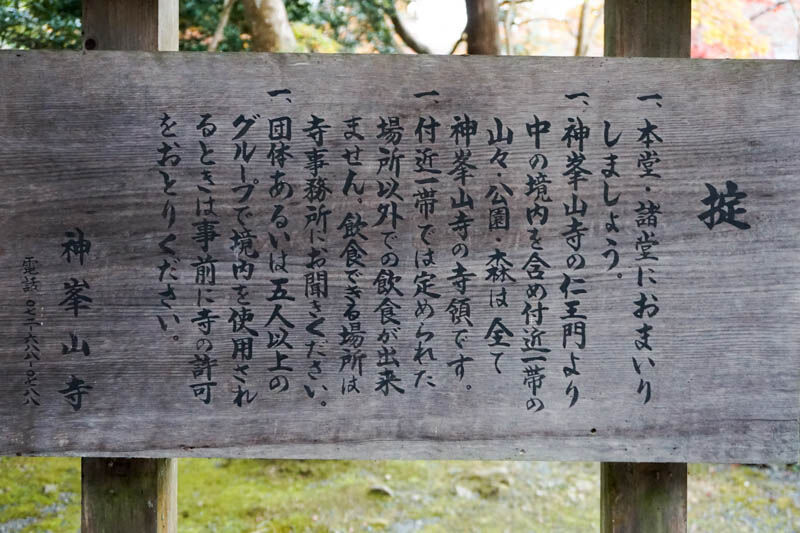 掟
一、本堂・諸堂におまいり
しましょう。
一、神峯山寺の仁王門より
中の境内を含め付近一帯の
山々・公園・森は全て
神峯山寺の寺領です。
一、付近一帯では定められた
場所以外での飲食が出来
ません。飲食できる場所は
寺事務所にお聞きください。
一、団体あるいは五人以上の
グループで境内を使用され
るときは事前に寺の許可
をおとりください。
神峯山寺
電話〇七二・六八八・〇七八八